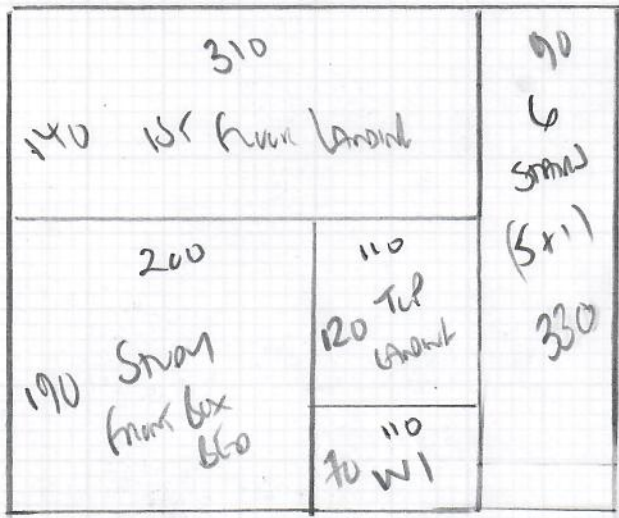 310
140 1ST FLOOR LANDING
90
6
STAIRS
(5+1)
330
200
190 STUDY
FRONT BOX
BED
110
120 TOP
LANDING
110
70 W1